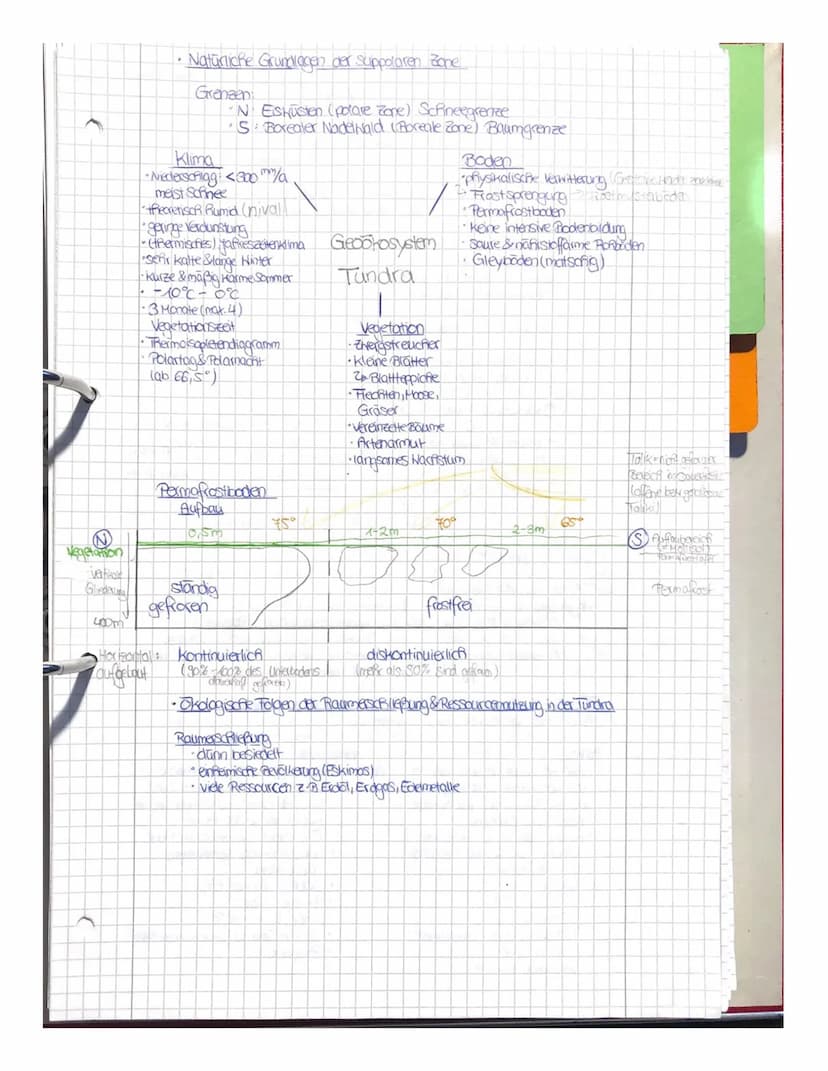 · Natürliche Grundlagen der suppolaren Zone
Grenzen:
· N: Eisküsten (polare Zone) Schneegrenze
· S: Borealer Nadelwald (Boreale Zone) Baumgrenze
Klima
· Niederschlag: <300 mm/a
meist Schnee
· theoretisch humid (nival)
· geringe Verdunstung
· (thermisches) Jahreszeitenklima
· sehr kalte & lange Winter
· kurze & mäßig warme Sommer
· -10°C - 0°C
· 3 Monate (max. 4)
Vegetationszeit
· Thermoisoplethendiagramm
· Polartag & Polarnacht
(ab 66,5°)
Geoökosystem
Tundra
Boden
· physikalische Verwitterung
Frostsprengung
· Permofrostboden
· keine intensive Bodenbildung
· saure & nährstoffarme Rohböden
· Gleyböden (matschig)
Vegetation
· Zwergstreucher
· kleine Blätter
↳ Blattteppiche
· Flechten, Moose,
Gräser
· vereinzelte Bäume
· Artenarmut
· langsames Wachstum
Permafrostboden
Aufbau
75° 70° 65°
0,5m 1-2m 2-3m
N
S
Vegetation
Auftaubereich
vertikale
Gliederung
400m
ständig
gefroren
frostfrei
Permafrost
Horizontal:
aufgebaut
kontinuierlich
(90%-100% des Unterbodens
dauerhaft gefroren)
diskontinuierlich
(mehr als 50% sind gefroren)
· Ökologische Folgen der Raumerschließung & Ressourcennutzung in der Tundra
Raumerschließung
· dünn besiedelt
· einheimische Bevölkerung (Eskimos)
· viele Ressourcen z.B Erdöl, Erdgas, Edelmetalle